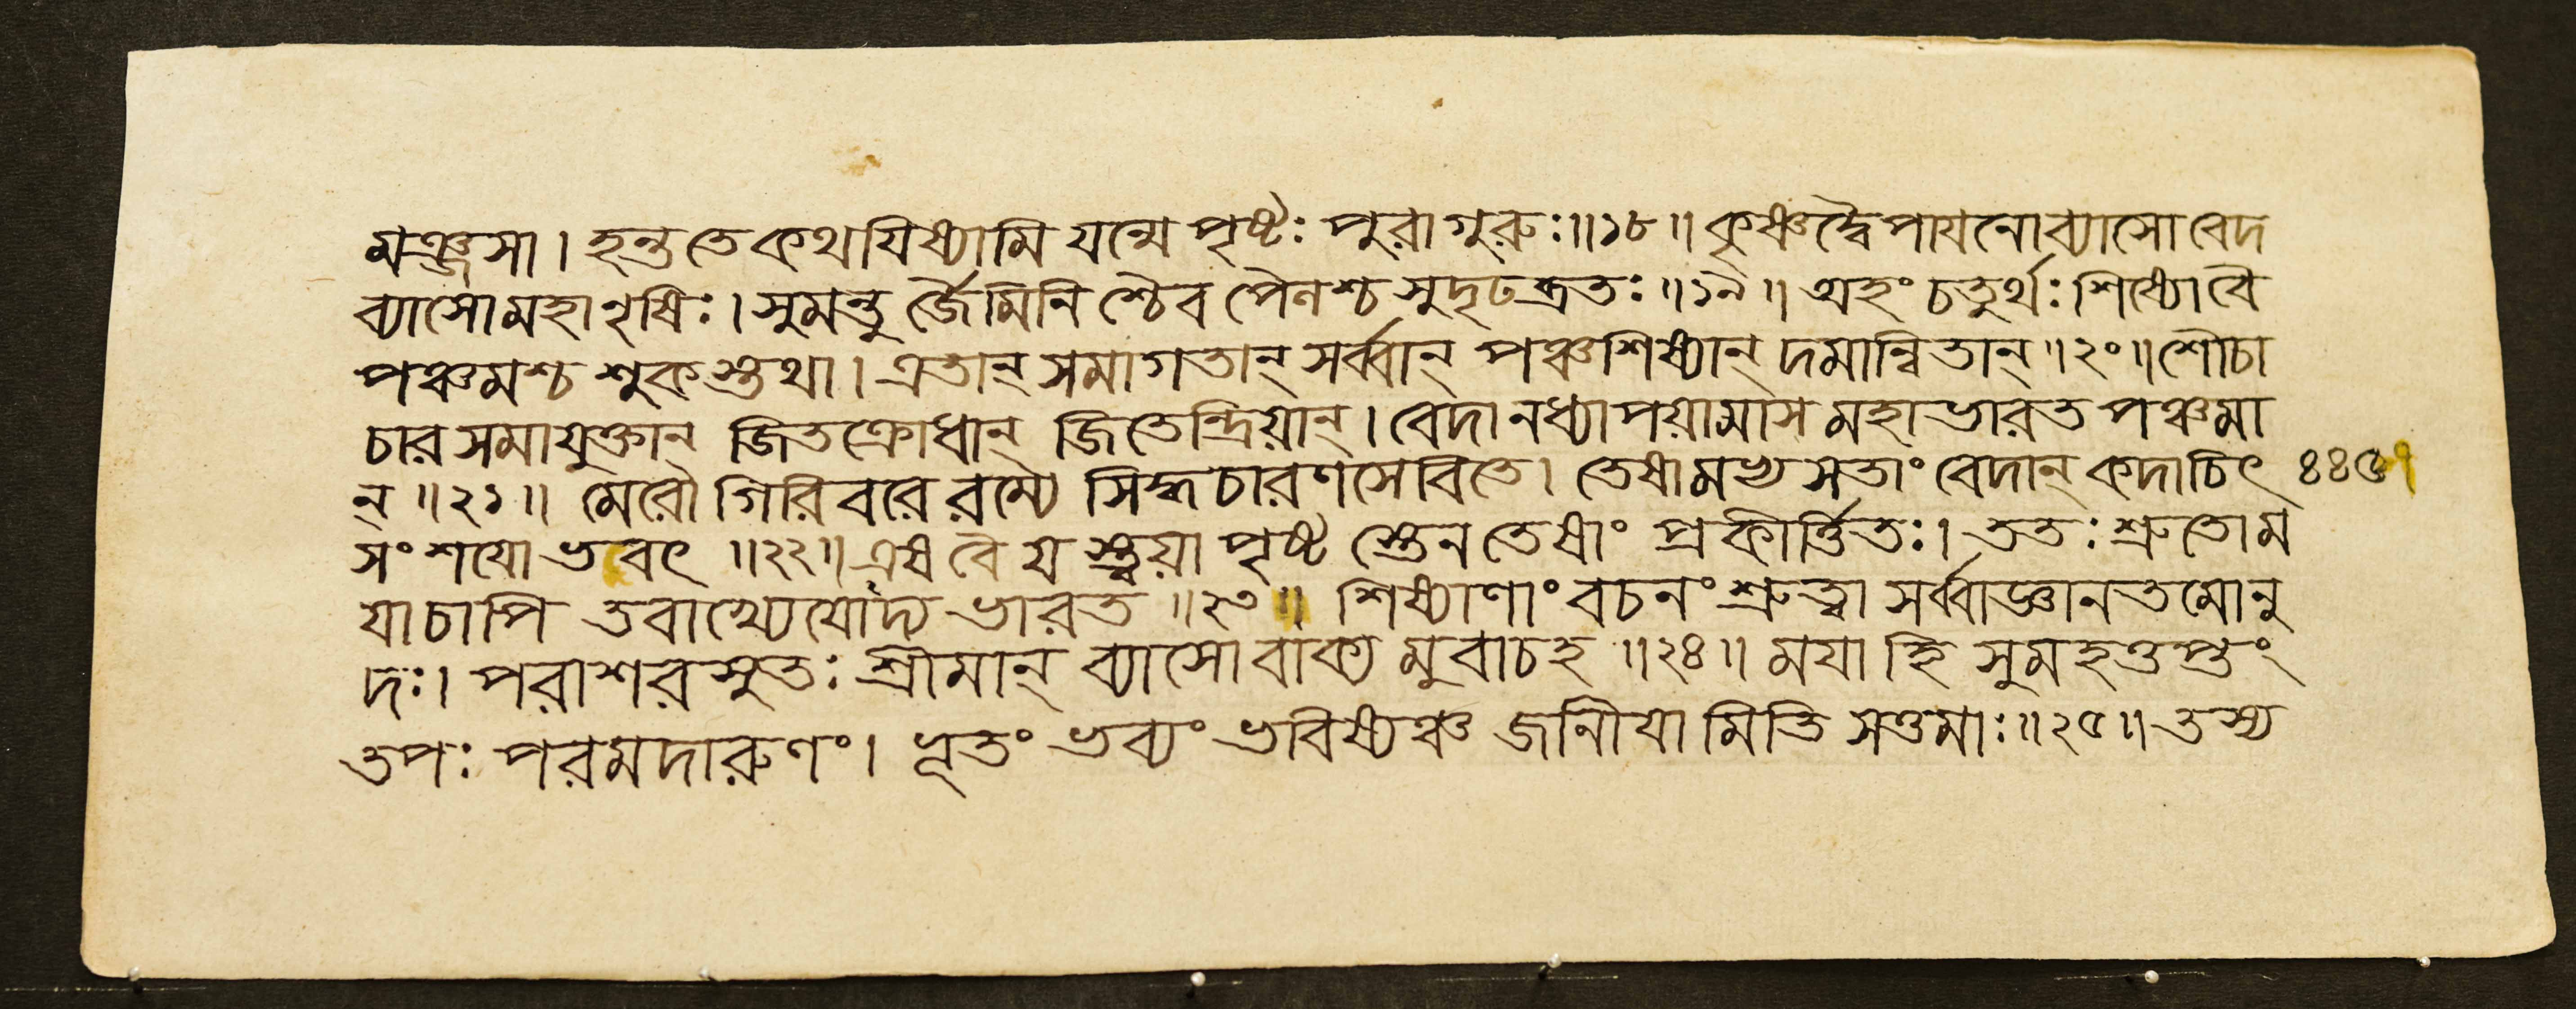 মঞ্জসা। হন্ত তে কথযিষ্যামি যন্মে পৃষ্টঃ পুরা গুরুঃ॥১৮॥ কৃষ্ণদ্বৈপাযনোব্যাসো বেদ
ব্যাসোমহানৃষিঃ। সুমন্তু র্জৈমিনি শ্চৈব পৈনশ্চ সুদৃঢব্রতঃ॥১৯॥ অহং চতুর্থঃ শিষ্যোবৈ
পঞ্চমশ্চ শুকস্তথা। এতান্ সমাগতান্ সর্ব্বান্ পঞ্চশিষ্যান্ দমান্বিতান্॥২০॥ শৌচা
চার সমাযুক্তান্ জিতক্রোধান্ জিতেন্দ্রিয়ান্। বেদানধ্যাপয়ামাস মহাভারত পঞ্চমা
ন্॥২১॥ মেরৌ গিরিবরে রম্যে সিদ্ধচারণসেবিতে। তেষামভ্যসতাং বেদান্ কদাচিৎ ৪৪৫
সংশযোভবৎ॥২২॥ এষ বৈ য স্ত্বয়া পৃষ্ট স্তেন তেষাং প্রকীর্ত্তিতঃ। ততঃ শ্রুতো ম
যা চাপি তবাখ্যেযোদ্য ভারত॥২৩॥ শিষ্যাণাং বচনং শ্রুত্বা সর্ব্বাজ্ঞানতমোনু
দঃ। পরাশর সুতঃ শ্রীমান্ ব্যাসো বাক্য মুবাচহ॥২৪॥ মযা হি সুমহত্তপ্তং
তপঃ পরমদারুণং। ভূতং ভব্যং ভবিষ্যঞ্চ জানীযামিতি সত্তমাঃ॥২৫॥ তস্য